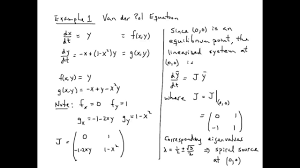 Example 1 Van der Pol Equation
dx/dt = y = f(x,y)
dy/dt = -x + (1-x²)y = g(x,y)
f(x,y) = y
g(x,y) = -x + y - x²y
Note: fx = 0 fy = 1
gx = -1-2xy gy = 1-x²
J = ( 0 1
-1-2xy 1-x² )
Since (0,0) is an
equilibrium point, the
linearised system at
(0,0) is
dY/dt = J Y
where J = J|(0,0)
= ( 0 1
-1 1 )
Corresponding eigenvalues
λ = 1/2 ± √3/2 i ⇒ spiral source
at (0,0)